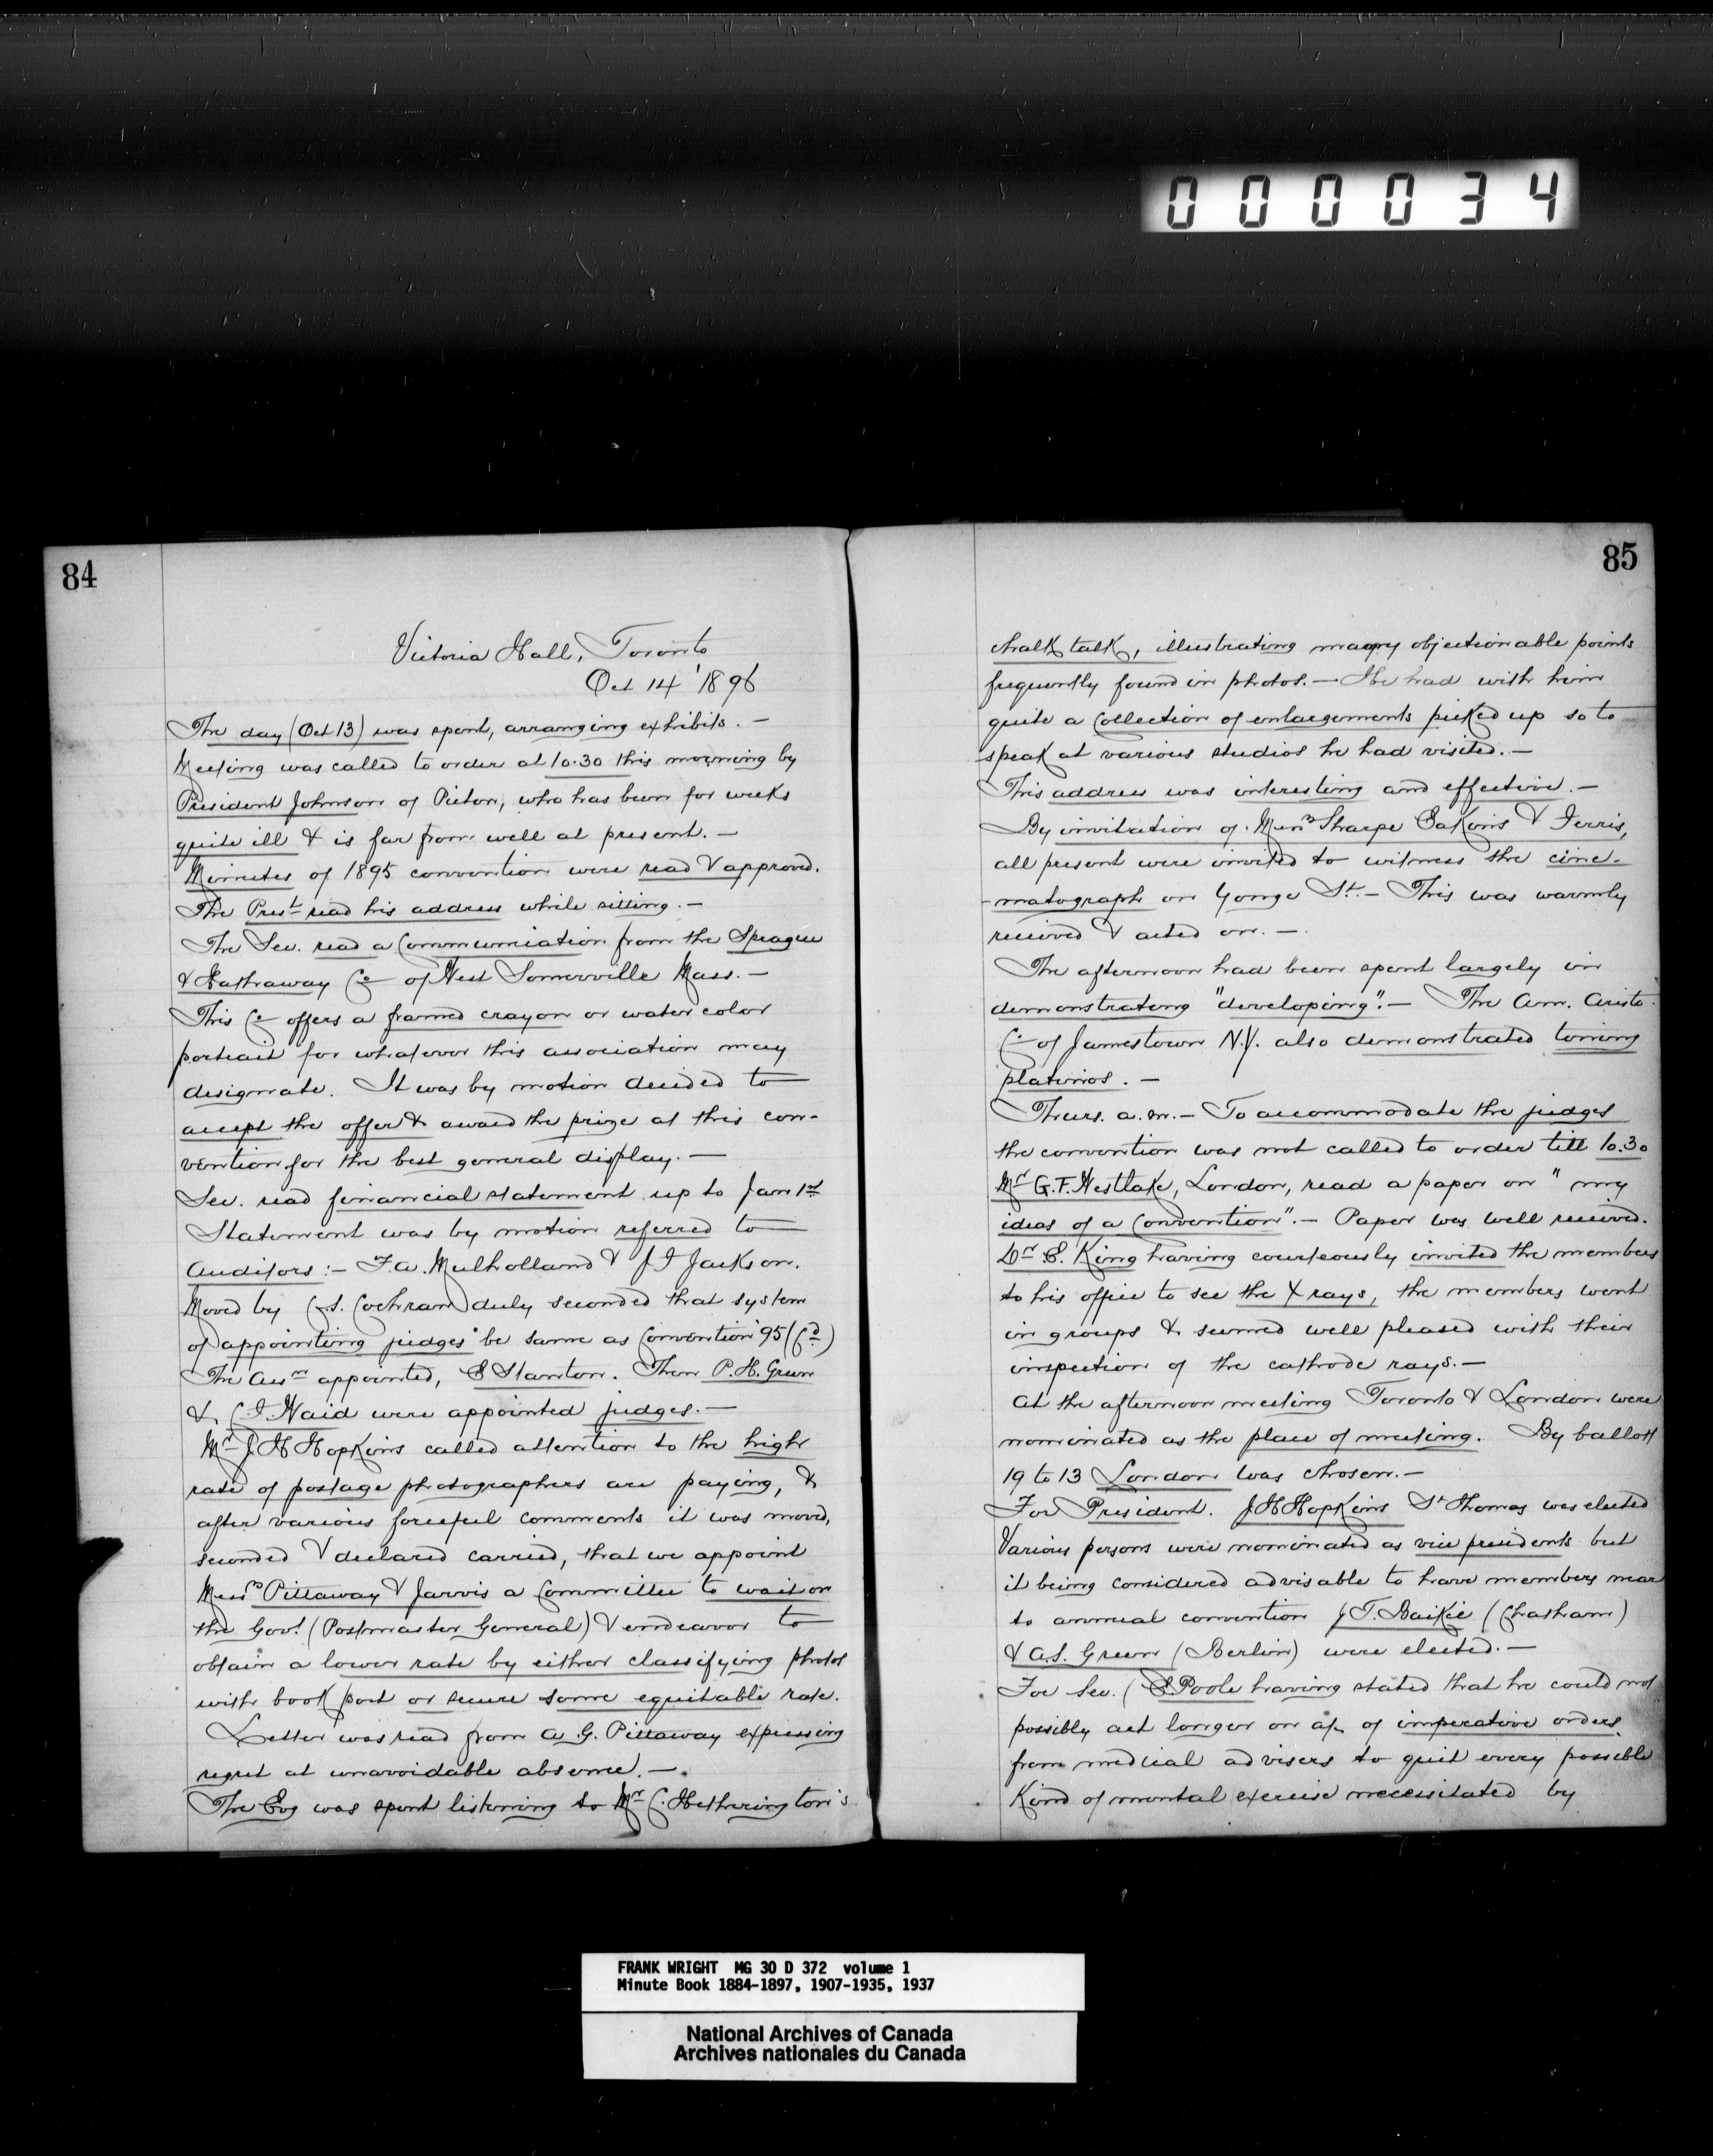 000034
84
Victoria Hall, Toronto
Oct 14 '1896
The day (Oct 13) was spent, arranging exhibits. —
Meeting was called to order at 10.30 this morning by
President Johnson of Picton, who has been for weeks
quite ill & is far from well at present. —
Minutes of 1895 convention were read & approved.
The Prest read his address while sitting. —
The Sec. read a Communication from the Sprague
& Hathaway Co of West Somerville Mass. —
This Co offers a framed crayon or water color
portrait for whatever this association may
designate. It was by motion decided to
accept the offer & award the prize at this con-
vention for the best general display. —
Sec. read financial statement up to Jan 1st
Statement was by motion referred to
Auditors :— F.A. Mulholland & J J Jackson.
Moved by C.S. Cochran duly seconded that system
of appointing judges be same as Convention '95 (Cd)
The Assn appointed, E Stanton. Then P. H. Green
& C. I. Waid were appointed judges. —
Mr J. H Hopkins called attention to the high
rate of postage photographers are paying, &
after various forceful comments it was moved,
seconded & declared carried, that we appoint
Messrs Pittaway & Jarvis a Committee to wait on
the Govt. (Postmaster General) & endeavor to
obtain a lower rate by either classifying photos
with book post or secure some equitable rate.
Letter was read from A. G. Pittaway expressing
regret at unavoidable absence. —
The Evg was spent listening to Mr C. Hetherington's
85
chalk talk, illustrating many objectionable points
frequently found in photos. — He had with him
quite a Collection of enlargements picked up so to
speak at various studios he had visited. —
This address was interesting and effective. —
By invitation of Messrs Sharpe Eakins & Ferris,
all present were invited to witness the cine-
-matograph on Yonge St. — This was warmly
received & acted on. —
The afternoon had been spent largely in
demonstrating "developing". — The Am. Aristo.
Co of Jamestown N.Y. also demonstrated toning
platinos. —
Thurs. a.m. — To accommodate the judges
the convention was not called to order till 10.30
Mr G.F. Westlake, London, read a paper on "my
ideas of a Convention". — Paper was well received.
Dr E. King having courteously invited the members
to his office to see the X rays, the members went
in groups & seemed well pleased with their
inspection of the cathode rays. —
At the afternoon meeting Toronto & London were
nominated as the place of meeting. By ballott
19 to 13 London was chosen. —
For President. J H Hopkins St Thomas was elected
Various persons were nominated as vice presidents but
it being considered advisable to have members near
to annual convention J T. Baikie (Chatham)
& A.S. Green (Berlin) were elected. —
For Sec. (E. Poole having stated that he could not
possibly act longer on a/c of imperative orders
from medical advisers to quit every possible
Kind of mental exercise necessitated by
FRANK WRIGHT MG 30 D 372 volume 1
Minute Book 1884-1897, 1907-1935, 1937
National Archives of Canada
Archives nationales du Canada